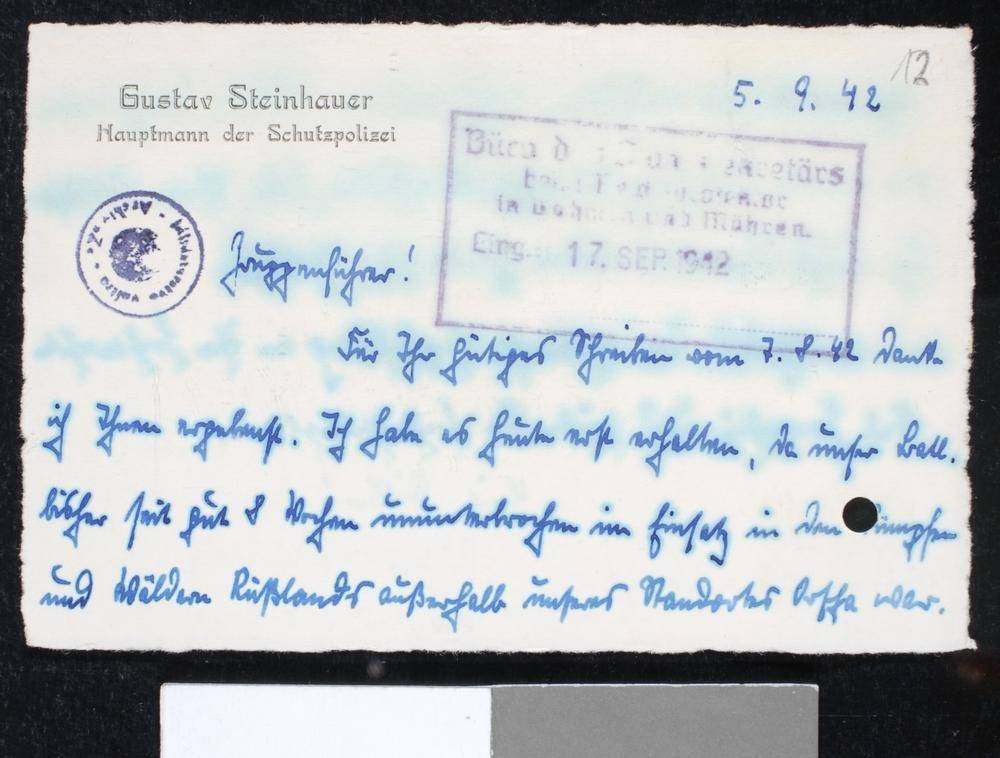 12
5. 9. 42
Gustav Steinhauer
Hauptmann der Schutzpolizei
Büro d Staatssekretärs
beim Reichsprotektor
in Böhmen und Mähren.
Eing. 17. SEP. 1942
Ministerstvo vnitra - Archiv
Gruppenführer!
Für Ihr gütiges Schreiben vom 7. 8. 42 danke
ich Ihnen ergebenst. Ich habe es heute erst erhalten, da unser Batl.
bisher seit gut 8 Wochen ununterbrochen im Einsatz in den Sümpfen
und Wäldern Rußlands außerhalb unseres Standortes Orscha war.